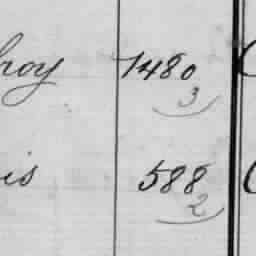 hoy 1480
3
is 588
2